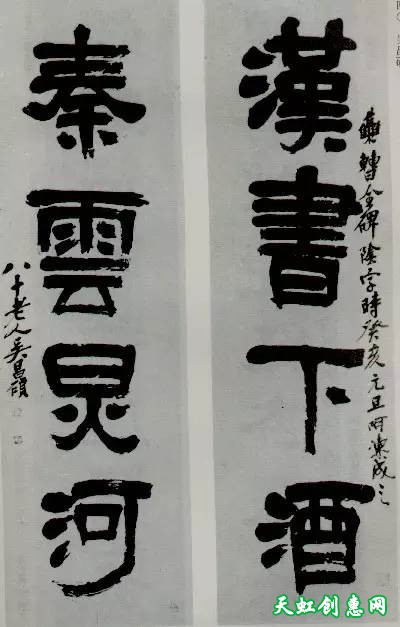 集曹全碑陰字時癸亥元旦呵凍成之
漢書下酒
秦雲炅河
八十老人吳昌碩
天虹创惠网